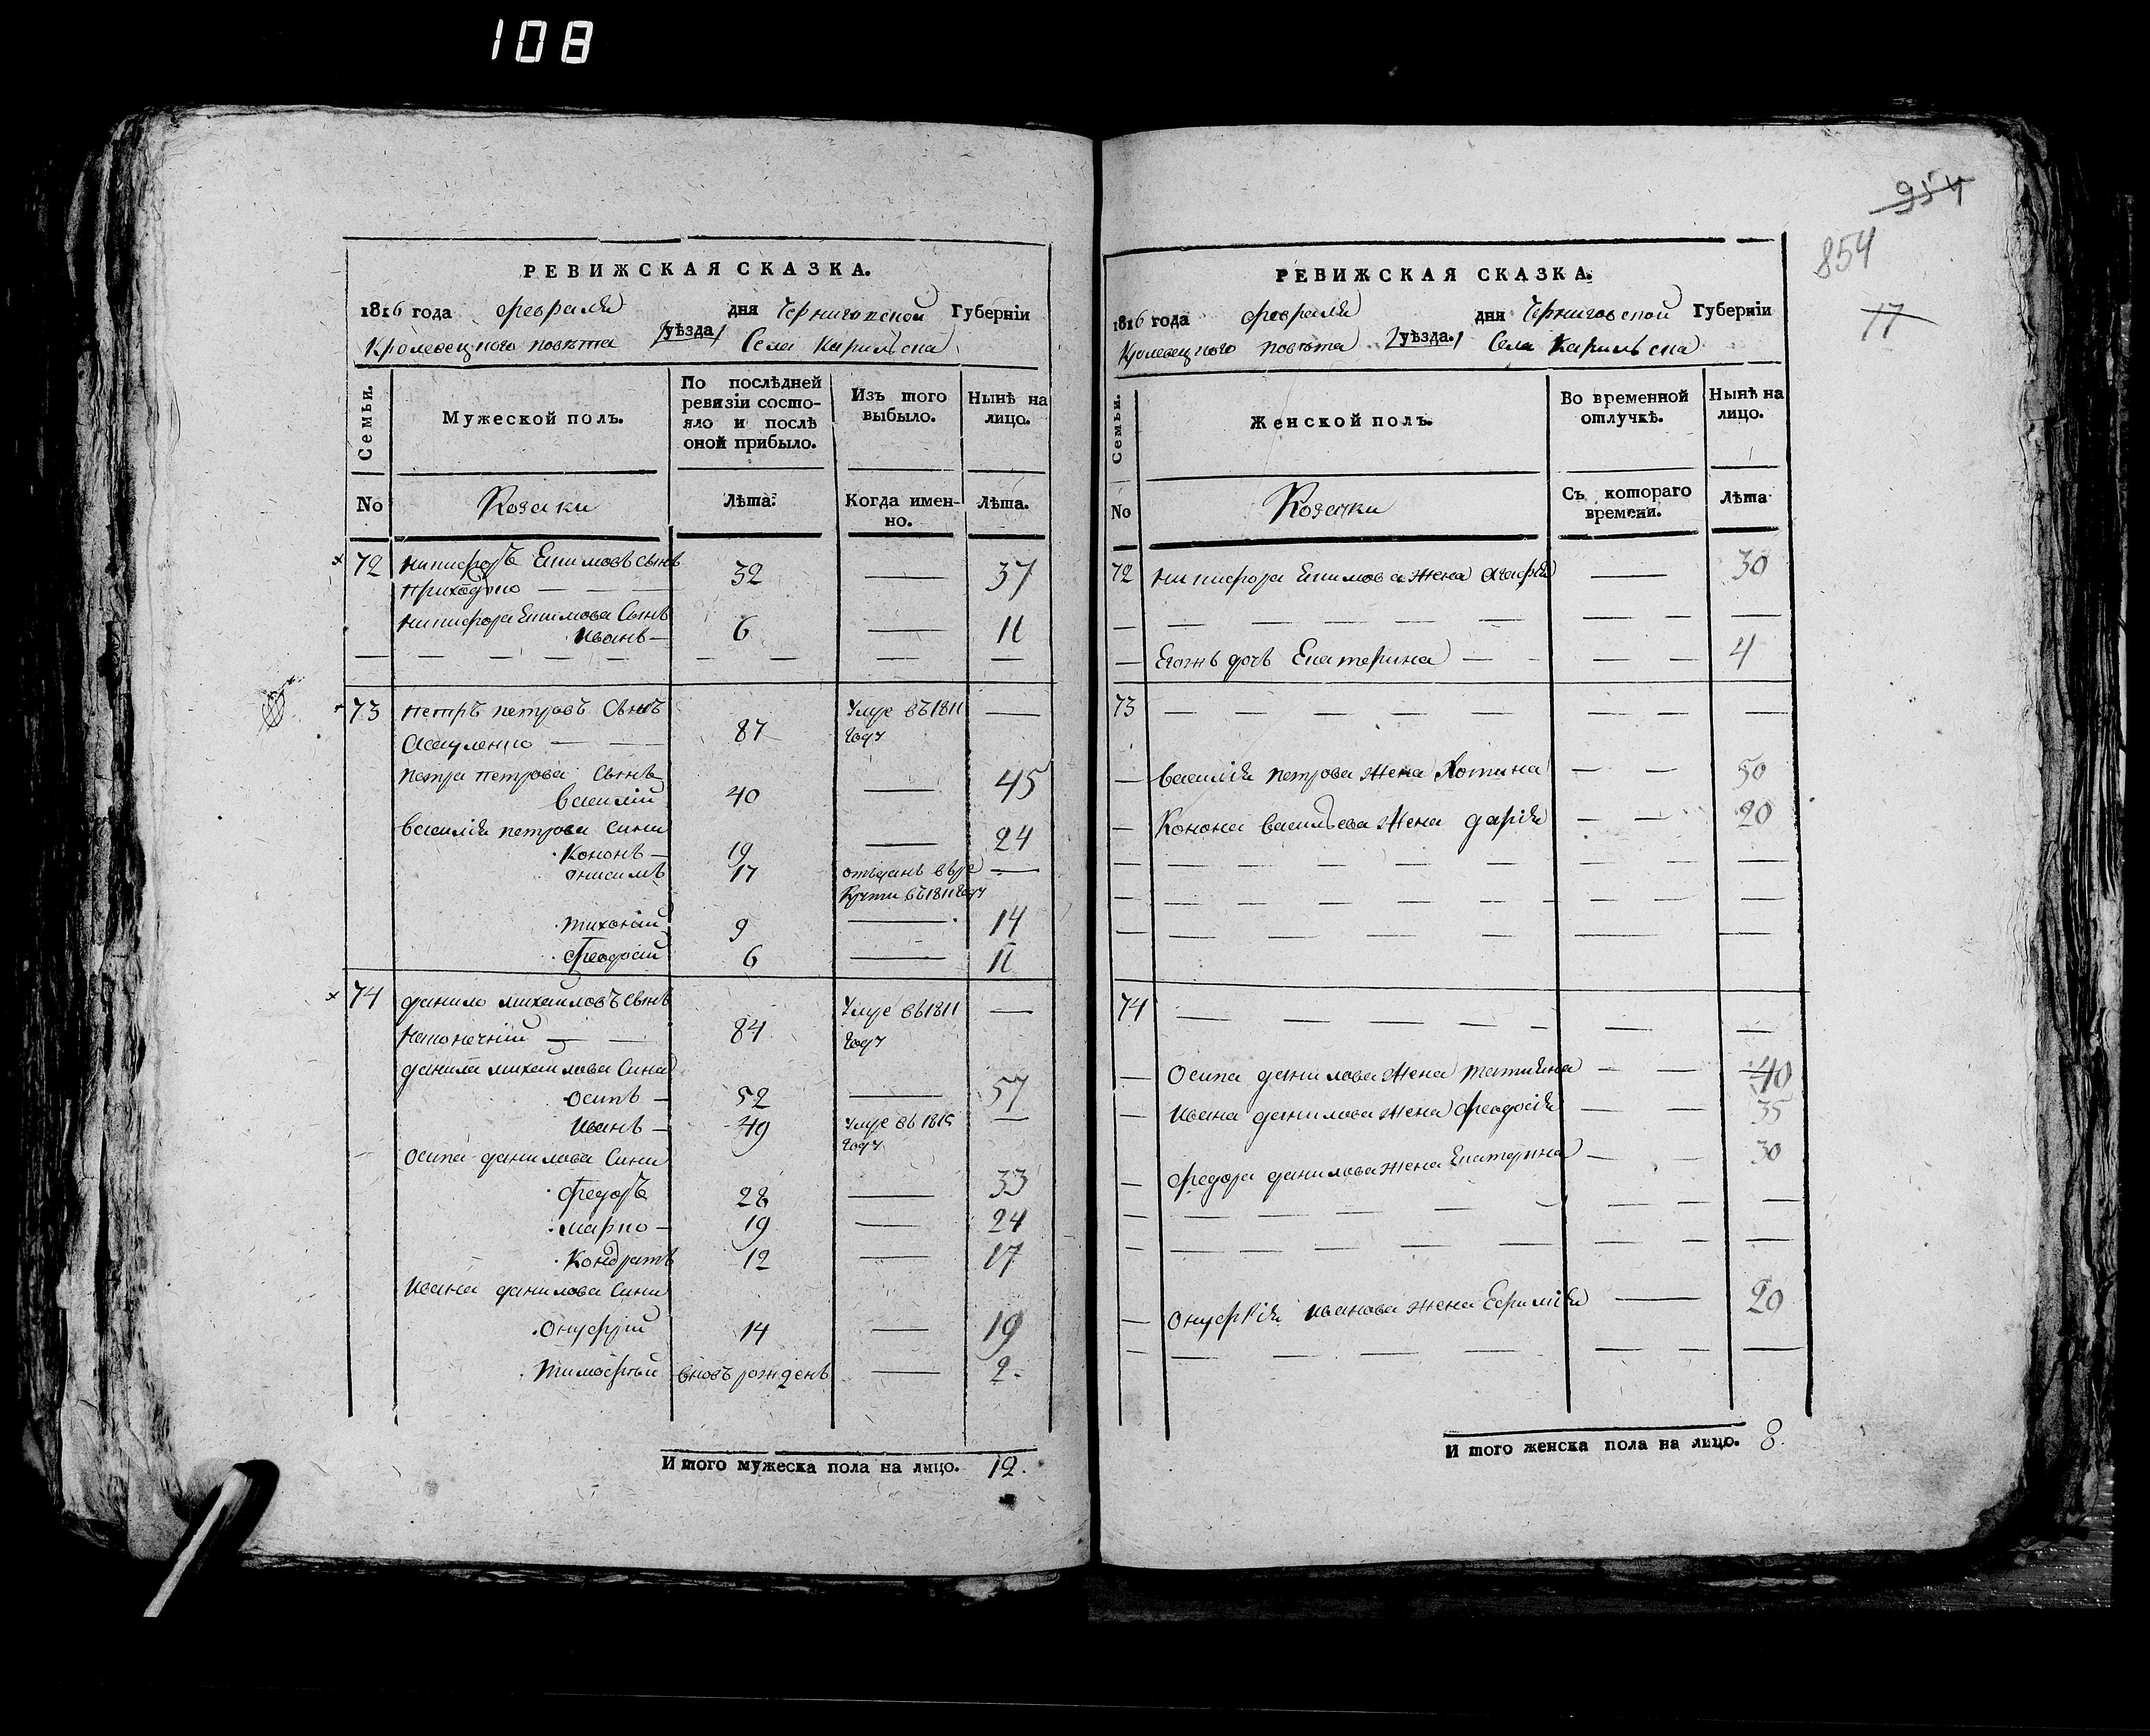 108
РЕВИЖСКАЯ СКАЗКА.
1816 года февраля дня Черниговской Губерніи
Кролевецкого повѣта уѣзда Села Карильска
Семьи.
Мужеской полъ.
По послѣдней ревизіи состо-
яло и послѣ оной прибыло.
Изъ того выбыло.
Нынѣ на лицо.
No
Козаки
Лѣта.
Когда имен-
но.
Лѣта.
72 Никифоръ Екимовъ сынъ
Приходко 32 37
Никифора Екимова Сынъ
Иванъ 6 11
73 Петръ петровъ Сынъ Умре въ 1811
87 году
Петра петрова Сынъ 45
Василій 40
Василія петрова Сини
Кононъ 19 24
Онисимъ 17 отъданъ въ ре
круты въ 1811 году
Тихоній 9 14
Феодосій 6 11
74 Данило михайловъ Сынъ Умре въ 1811
Наконечній 84 году
Данила михайлова Сини
Осипъ 52 57
Иванъ 49 Умре въ 1815
году
Осипа данилова Сини
Федоръ 28 33
Марко 19 24
Кондратъ 12 17
Ивана данилова Сини
Онуфрій 14 19
Тимофѣй вновъ рожденъ 2
И того мужеска пола на лицо. 12.
954
854
17
РЕВИЖСКАЯ СКАЗКА.
1816 года февраля дня Черниговской Губерніи
Кролевецкого повѣта уѣзда. Села Карильска
Семьи.
Женской полъ.
Во временной отлучкѣ.
Нынѣ на лицо.
No
Козачки
Съ котораго времени.
Лѣта
72 Никифора Екимова жена Агафія 30
Егожъ дочь Екатерина 4
73
Василія петрова жена 50
Конона васильева жена дарія 20
74
Осипа данилова жена татияна 40
Ивана данилова жена феодосія 35
Федора данилова жена Екатерина 30
Онуфрія иванова жена Ефимія 20
И того женска пола на лицо. 8.